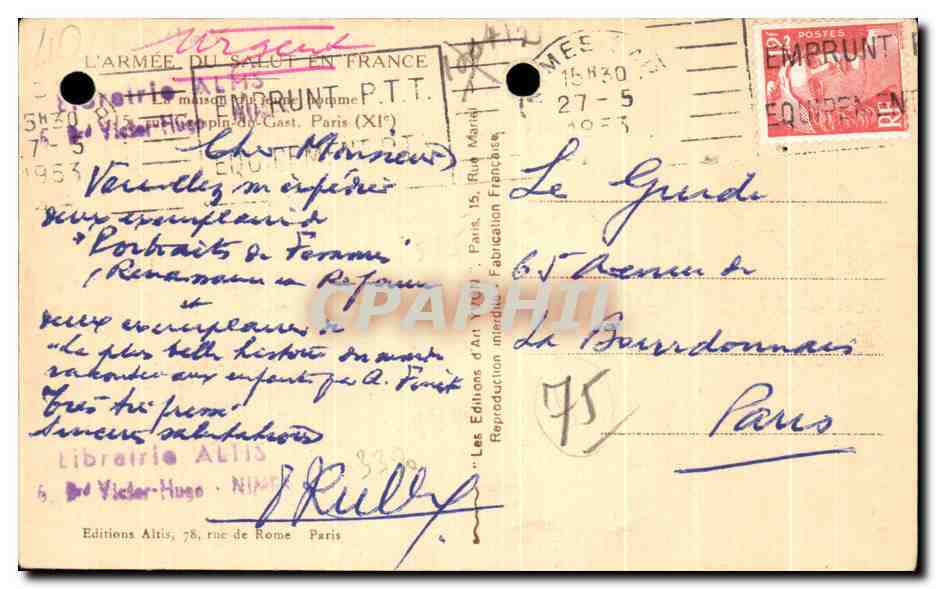 Urgent
L'ARMÉE DU SALUT EN FRANCE
La maison du jeune homme
rue Crespin-du-Gast. Paris (XIe)
Librairie ALTIS
Bd Victor-Hugo
EMPRUNT P.T.T.
EQUIPEMENT
15H30
27-5
1953
NIMES
15H30
27-5
1953
EMPRUNT
EQUIPEMEN
POSTES
12F
RF
Cher Monsieur
Veuillez m'expédier
deux exemplaires de
"Portraits de Femmes"
Renaissance et Réforme
et
deux exemplaires de
"La plus belle histoire du monde
racontée aux enfants par A.
Très très pressé
Sincères salutations
Librairie ALTIS
6, Bd Victor-Hugo - NIMES
Editions Altis, 78, rue de Rome Paris
"Les Editions d'Art YVON". Paris, 15, Rue Martel
Reproduction interdite. Fabrication Française
Le Guide
65 Avenue de
La Bourdonnais
Paris
75
CPAPHIL